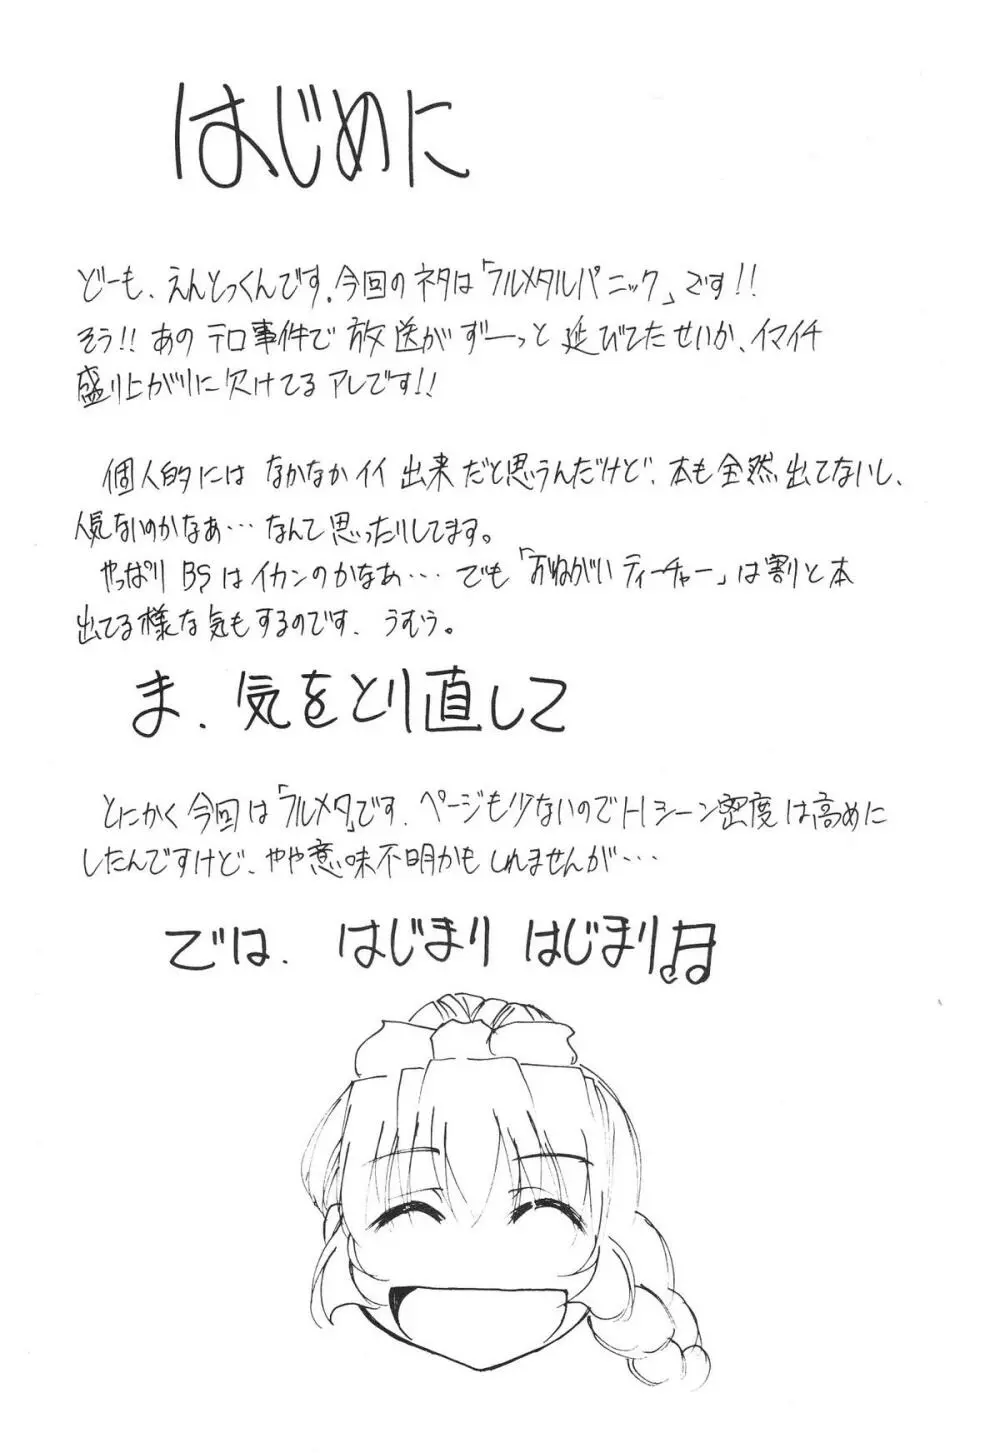 はじめに
どーも、えんとっくんです。今回のネタは「フルメタルパニック」です!!
そう!!あのテロ事件で放送がずーっと延びてたせいか、イマイチ
盛り上がりに欠けてるアレです!!
個人的にはなかなかイイ出来だと思うんだけど、本も全然出てないし、
人気ないのかなぁ…なんて思ったりしてます。
やっぱりBSはイカンのかなあ…でも「おねがいティーチャー」は割と本
出てる様な気もするのです、うむぅ。
ま、気をとり直して
とにかく今回は「フルメタ」です、ページも少ないのでHシーン密度は高めに
したんですけど、やや意味不明かもしれませんが…
では、はじまりはじまり♫